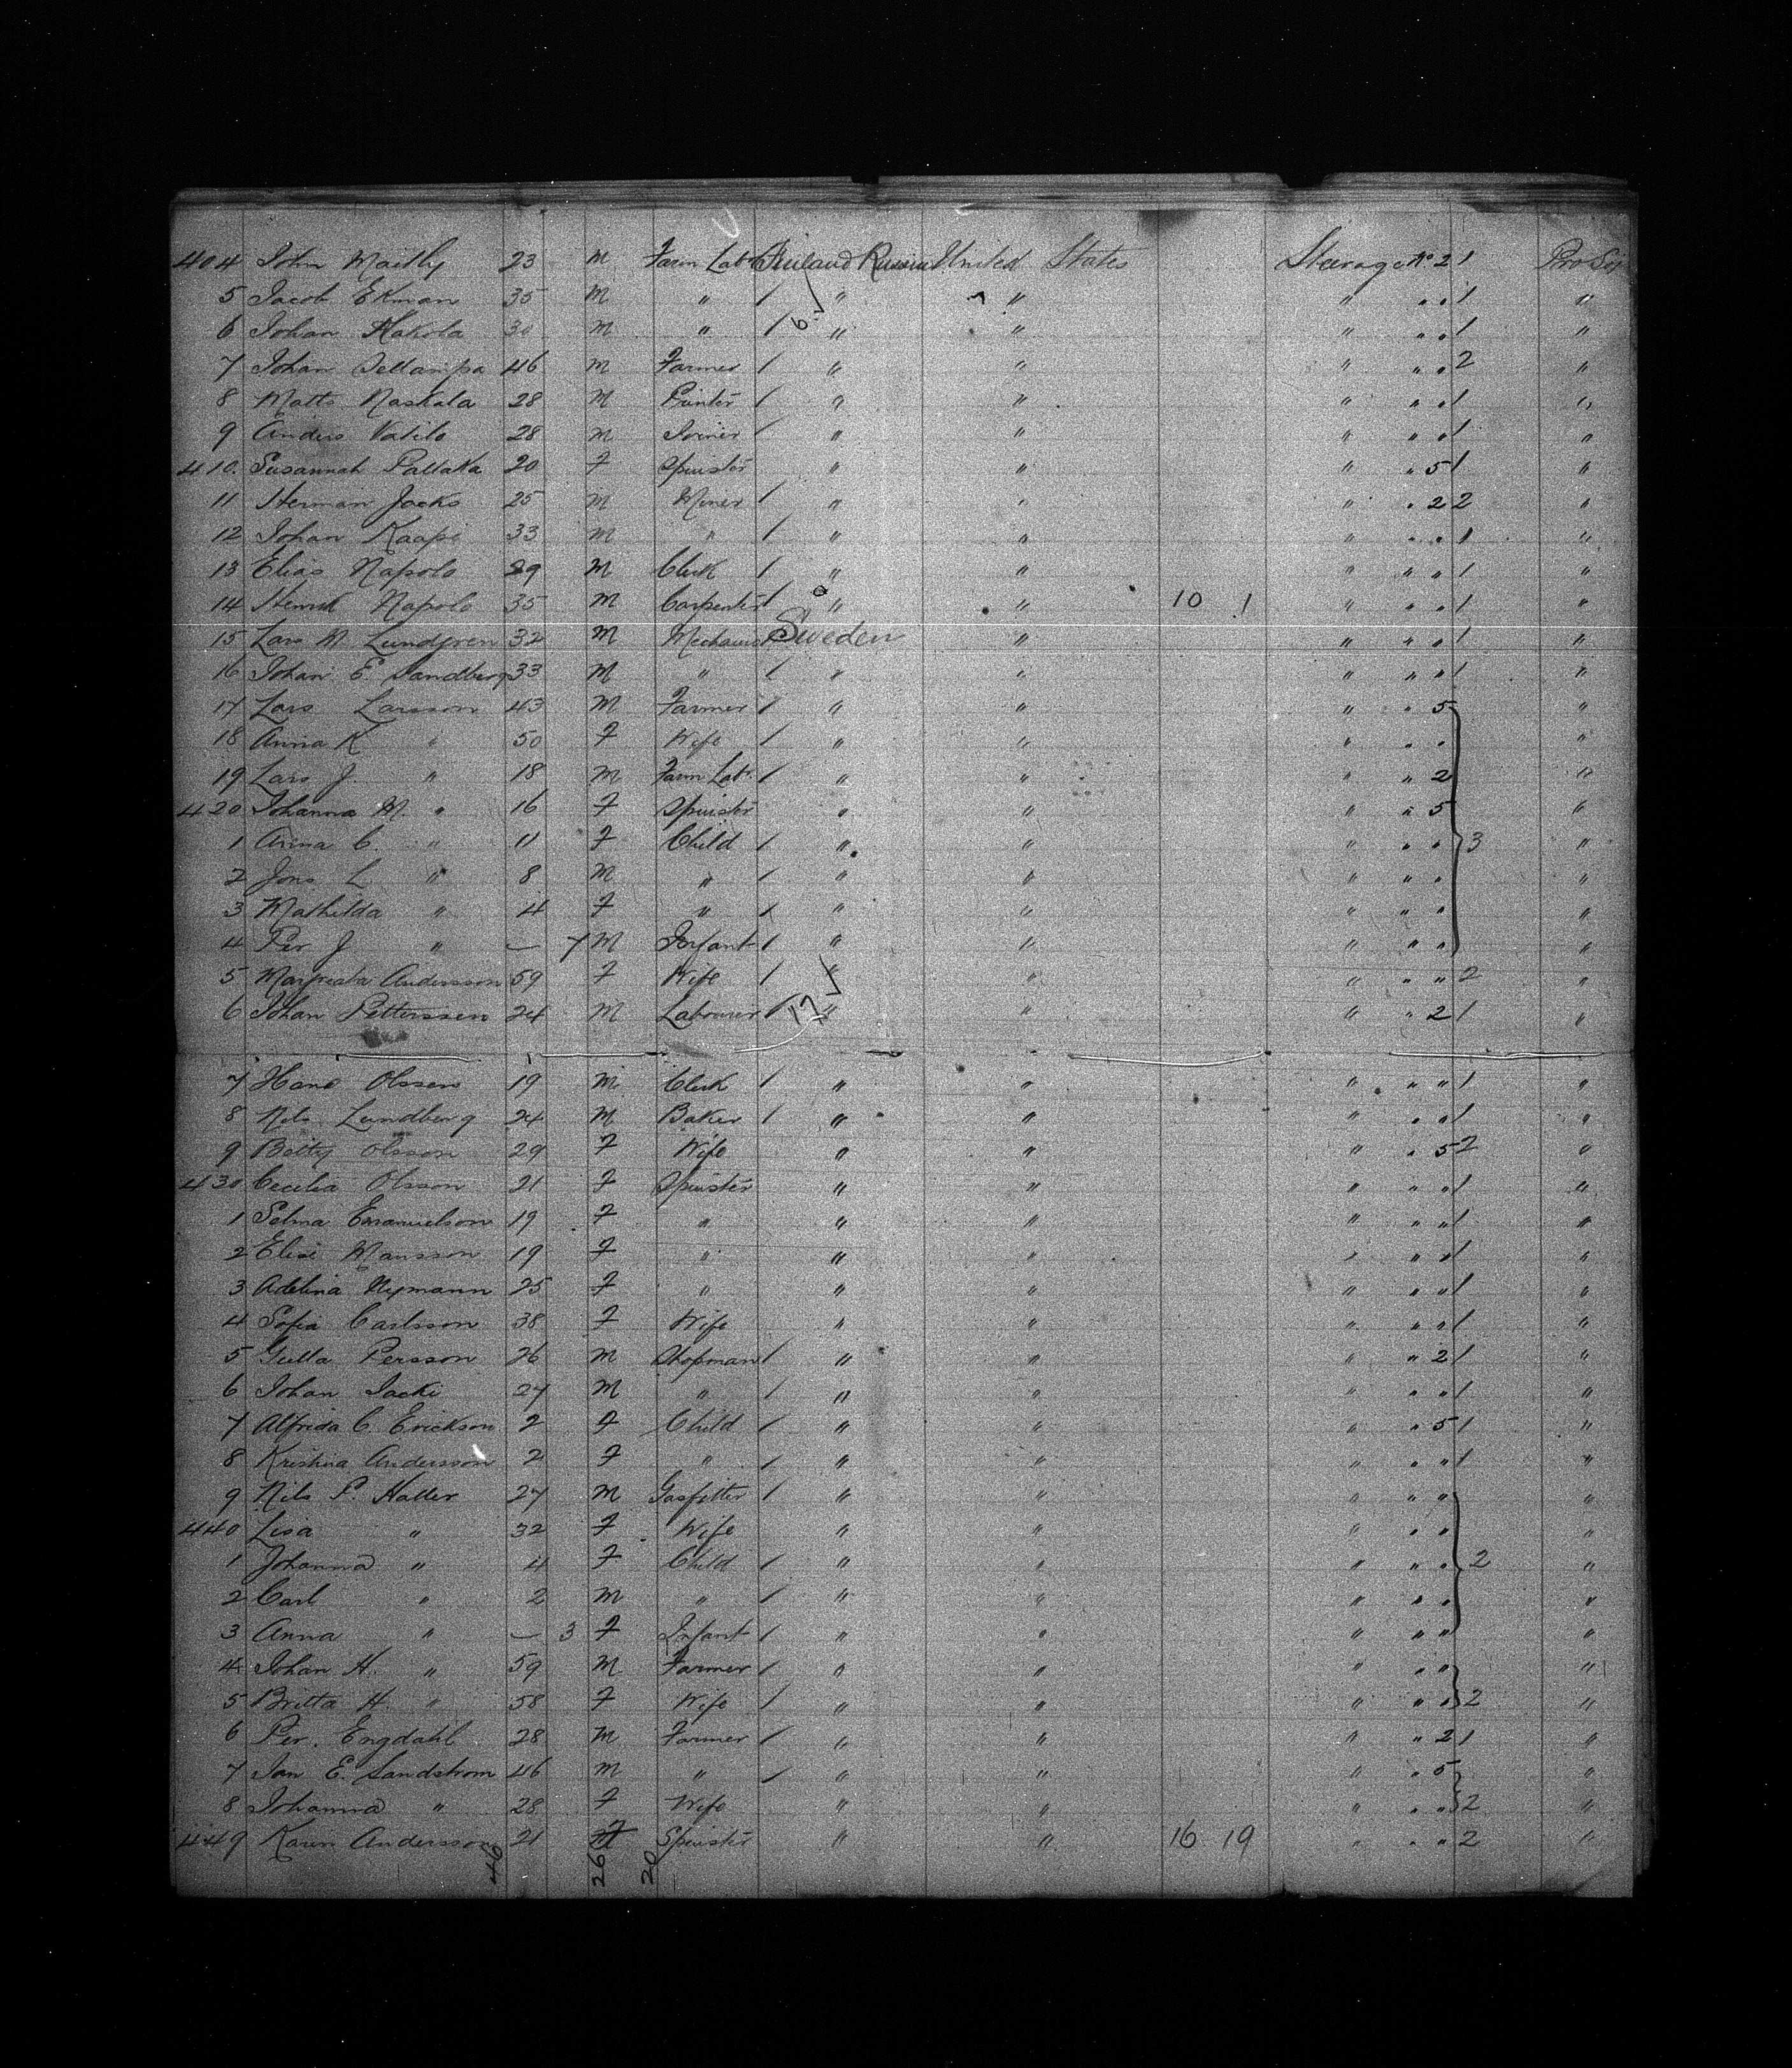 404 John Maitby 23 M Farm Lab Finland Russia United States Steerage No 2 1 Pro Sej
5 Jacob Ekman 35 M " / " " " " " 1 "
6 Johan Hakola 30 M " / " " " " " 1 "
7 Johan 46 M Farmer / " " " " " 2 "
8 Matts Naskala 28 M Printer / " " " " " 1 "
9 Anders Vatilo 28 M Joiner / " " " " " 1 "
410. Susannah Pallaka 20 F Spinster " " " " 5 1 "
11 Herman Jacks 25 M Miner / " " " " 2 2 "
12 Johan Kaapi 33 M " / " " " " " 1 "
13 Elias Napolo 29 M Clerk / " " " " " 1 "
14 Henrik Napolo 35 M Carpenter / " " 10 1 " " " 1 "
15 Lars M Lundgren 32 M Mechanic Sweden " " " " 1 "
16 Johan E Sandberg 33 M " / " " " " " 1 "
17 Lars Larsson 43 M Farmer / " " " " 5 "
18 Anna K " 50 F Wife / " " " " " "
19 Lars J. " 18 M Farm Lab. / " " " " 2 "
420 Johanna M. " 16 F Spinster " " " " 5 "
1 Anna C. " 11 F Child / " " " " " 3 "
2 Jons L " 8 M " / " " " " " "
3 Mathilda " 4 F " / " " " " " "
4 Per J " — 7 M Infant / " " " " " "
5 Margreata Andersson 59 F Wife / " " " " " 2 "
6 Johan Petterssen 24 M Labourer / 17 " " " " 2 1 "
7 Hans Olssen 19 M Clerk / " " " " " 1 "
8 Nils Lundberg 24 M Baker / " " " " " 1 "
9 Betty Olsson 29 F Wife " " " " 5 2 "
430 Cecelia Olsson 21 F Spinster " " " " " 1 "
1 Selma Emanuelson 19 F " " " " " " 1 "
2 Elise Mansson 19 F " " " " " " 1 "
3 Adelina Nymann 25 F " " " " " " 1 "
4 Sofia Carlsson 38 F Wife " " " " " 1 "
5 Gulla Persson 26 M Shopman / " " " " 2 1 "
6 Johan Jacki 27 M " / " " " " " 1 "
7 Alfrida C Erickson 2 F Child / " " " " 5 1 "
8 Kristina Andersson 2 F " / " " " " " 1 "
9 Nils P. Haller 27 M Gasfitter / " " " " " "
440 Lisa " 32 F Wife " " " " " "
1 Johanna " 4 F Child / " " " " " 2 "
2 Carl " 2 M " / " " " " " "
3 Anna " — 3 F Infant / " " " " " "
4 Johan H. " 59 M Farmer / " " " " " "
5 Britta H. " 58 F Wife / " " " " " 2 "
6 Per. Engdahl 28 M Farmer / " " " " 2 1 "
7 Jan E. Sandstrom 46 M " / " " " " 5 "
8 Johanna " 28 F Wife " " " " " 2 "
449 Karen Andersson 21 F Spinster " " 16 19 " " " 2 "
46 26 20